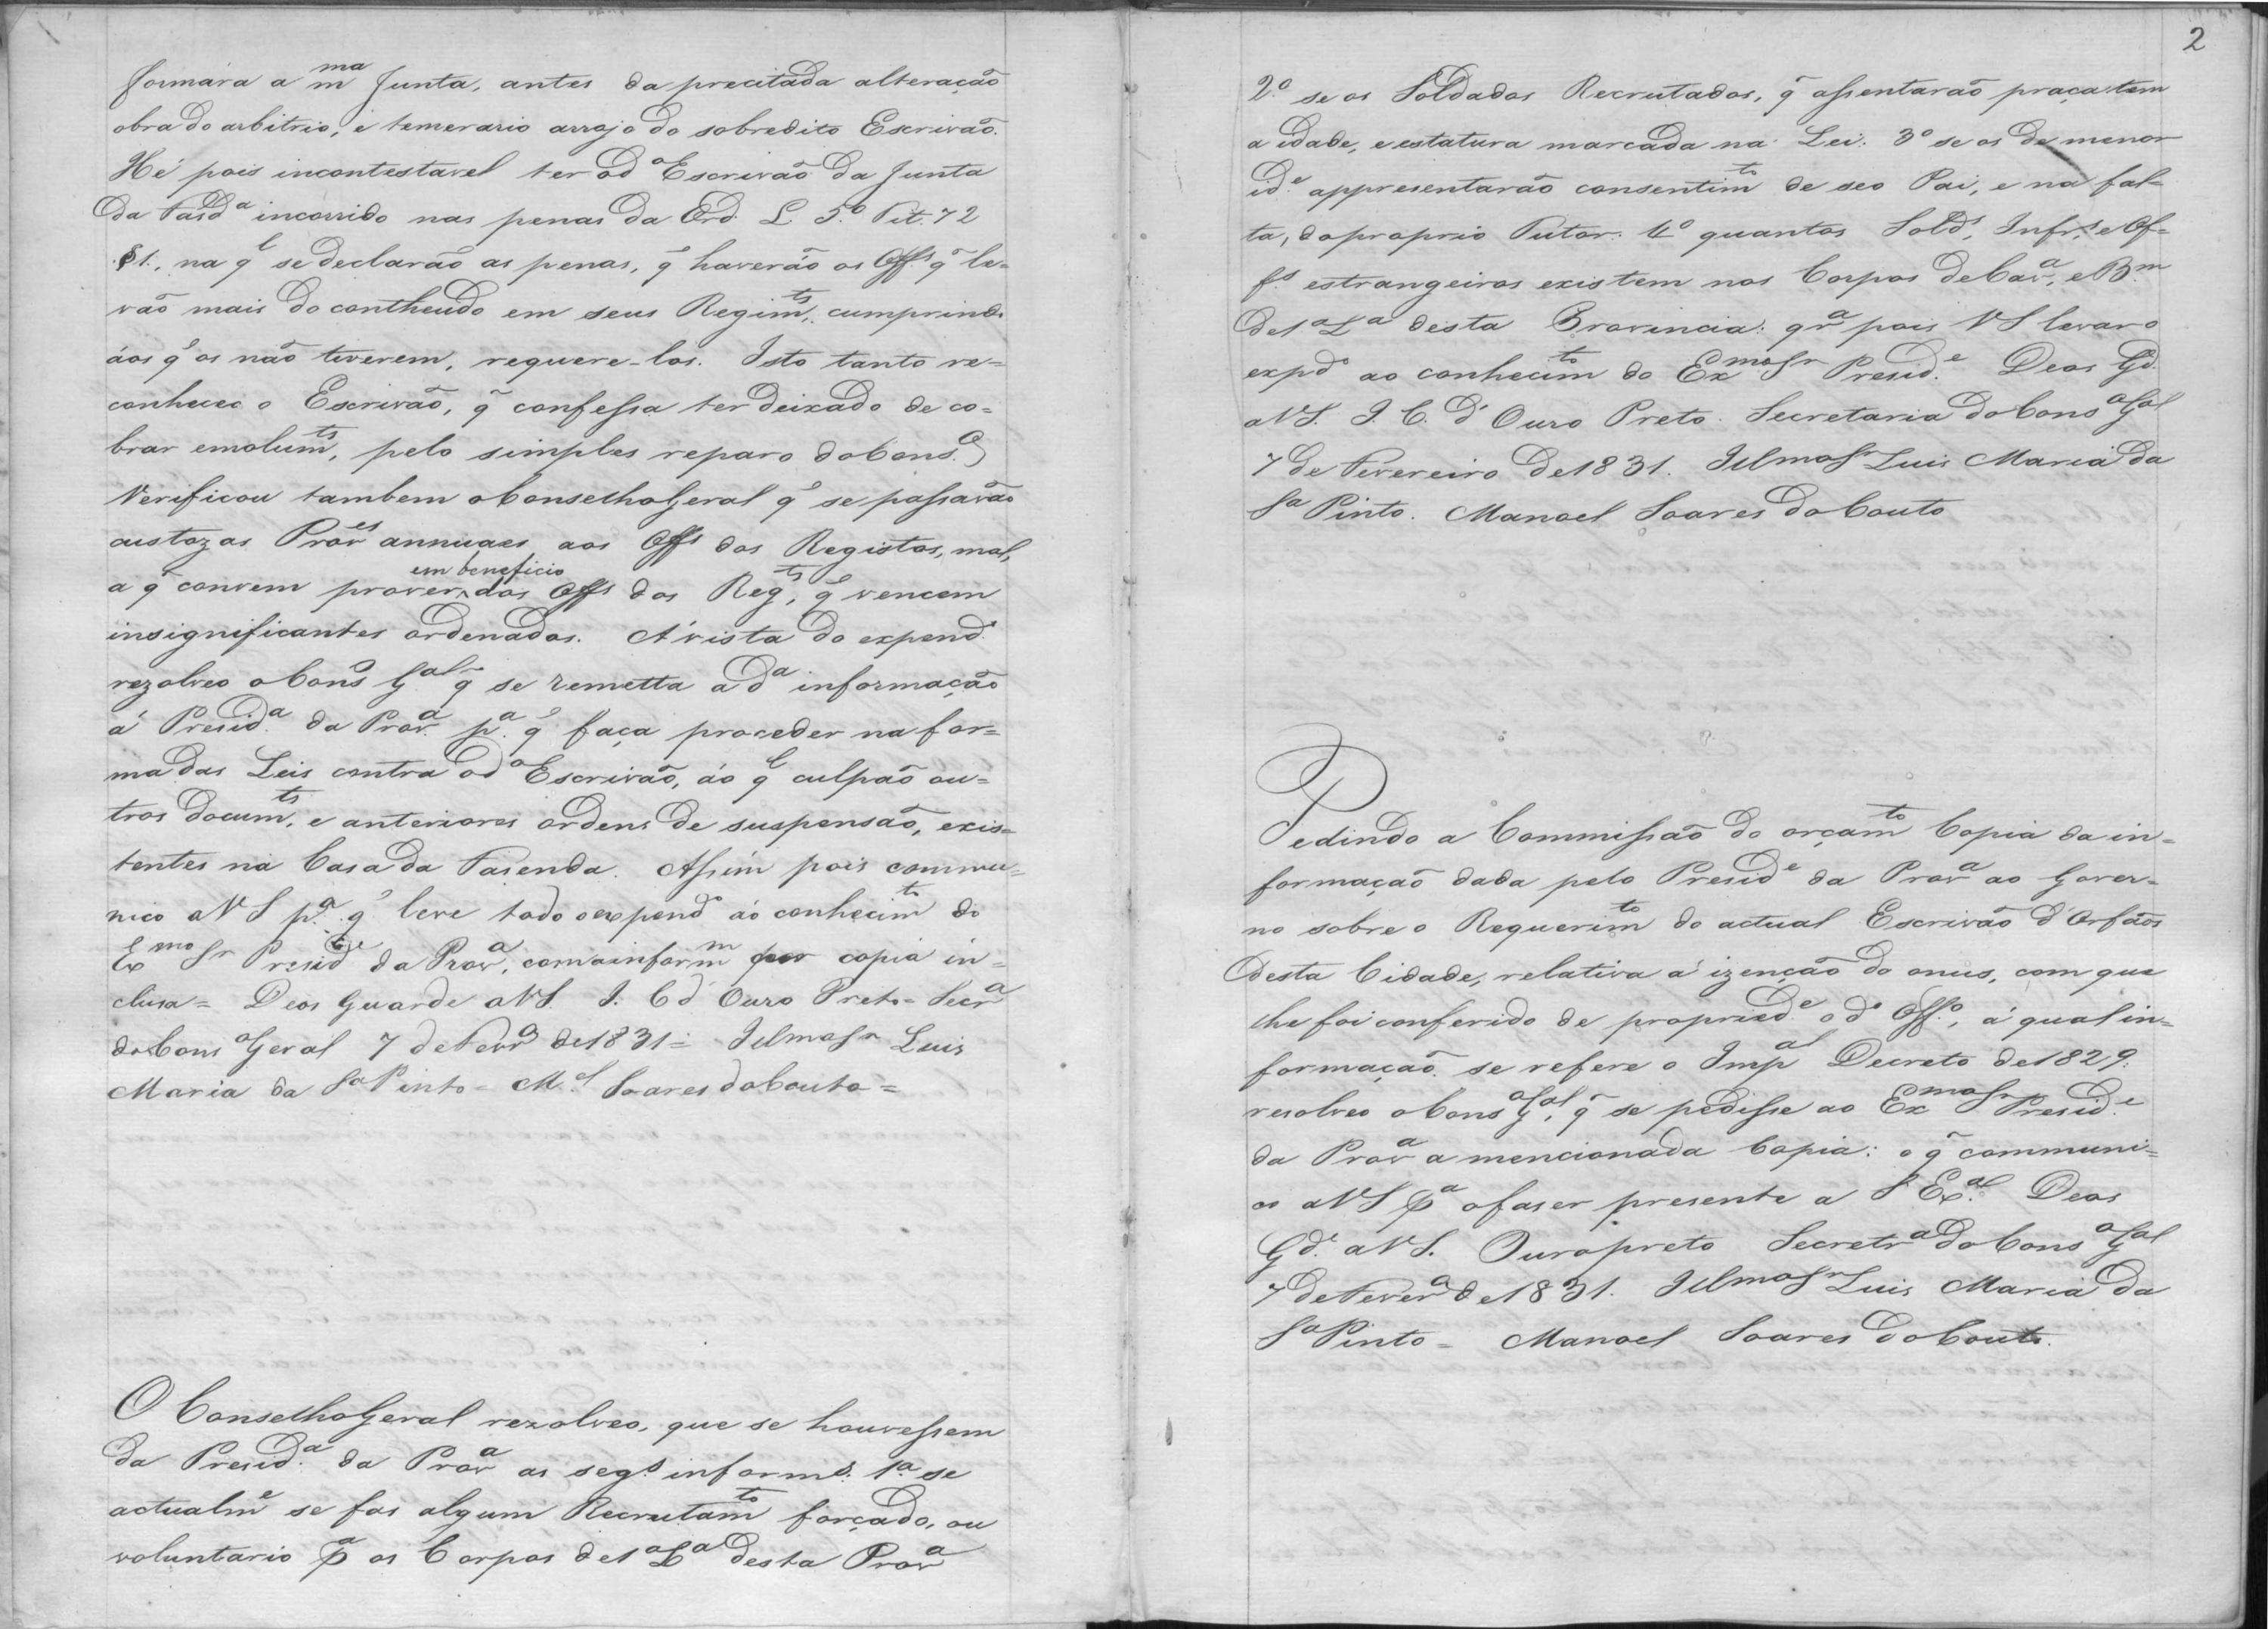 formára a mma Junta, antes da precitada alteração
obra do arbitrio, e temerario arrojo do sobredito Escrivão.
Hé pois incontestavel ter o do Escrivão da Junta
da Fasda incorrido nas penas da Ord. L. 5.º Tit. 72
§1., na ql se declarão as penas, q̃ haverão os Offs q̃ le=
vão mais do contheudo em seus Regimts, cumprindo
áos q̃ os não tiverem, requere-los. Isto tanto re=
conheceo o Escrivão, q̃ confessa ter deixado de co=
brar emolumts, pelo simples reparo do Conso
Verificou tambem o Conselho Geral q̃ se passavão
custozas Proves annuaes aos Offs dos Registos, mal,
a q̃ convem prover em beneficio dos Offs dos Regts, q̃ vencem
insignificantes ordenados. Á vista do expendo
rezolveo o Conso Gal q̃ se remetta a da informação
á Presida da Prova pa q̃ faça proceder na for=
ma das Leis contra o do Escrivão, áo ql culpão ou=
tros documts, e anteriores ordens de suspensão, exis=
tentes na Casa da Fasenda. Assim pois commu=
nico a VS pa q̃ leve todo o expendo áo conhecimto do
Exmo Sr Preside da Prova, com a informm por copia in=
clusa= Deos Guarde a VS. I. C d' Ouro Preto= Secra
do Conso Geral 7 de Fevro de 1831= Illmo Sr Luis
Maria da Sa Pinto= Mel Soares do Couto=
O Conselho Geral rezolveo, que se houvessem
da Presida da Prova as segs informs: 1.ª se
actualme se fas algum Recrutamto forçado, ou
voluntario pa os Corpos de 1a La desta Prova
2
2º se os Soldados Recrutados, q̃ assentarão praça tem
a idade, e estatura marcada na Lei: 3º se os de menor
ide appresentarão consentimto de seo Pai, e na fal=
ta, do proprio Tutor: 4º quantos Solds, Infrs, e Of=
fs estrangeiros existem nos Corpos de Cava, e Bm
de 1a La desta Provincia: qra pois VS levar o
expdo ao conhecimto do Exmo Sr Preside. Deos Gde
a VS. I. C. d' Ouro Preto. Secretaria do Conso Gal
7 de Fevereiro de 1831. Illmo Sr Luis Maria da
Sa Pinto. Manoel Soares do Couto
Pedindo a Commissão do orçamto Copia da in=
formação dada pelo Preside da Prova ao Gover=
no sobre o Requerimto do actual Escrivão d'Orfãos
desta Cidade, relativa á izenção do onus, com que
lhe foi conferido de propriede o do Offo, á qual in=
formação se refere o Impal Decreto de 1829:
resolveo o Conso Gal, q̃ se pedisse ao Exmo Sr Preside
da Prova a mencionada Copia: o q̃ communi=
co a VS pa o faser presente a S Exa. Deos
Gde a VS. Ouropreto Secretra do Conso Gal
7 de Fevero de 1831. Illmo Sr Luis Maria da
Sa Pinto= Manoel Soares do Couto.